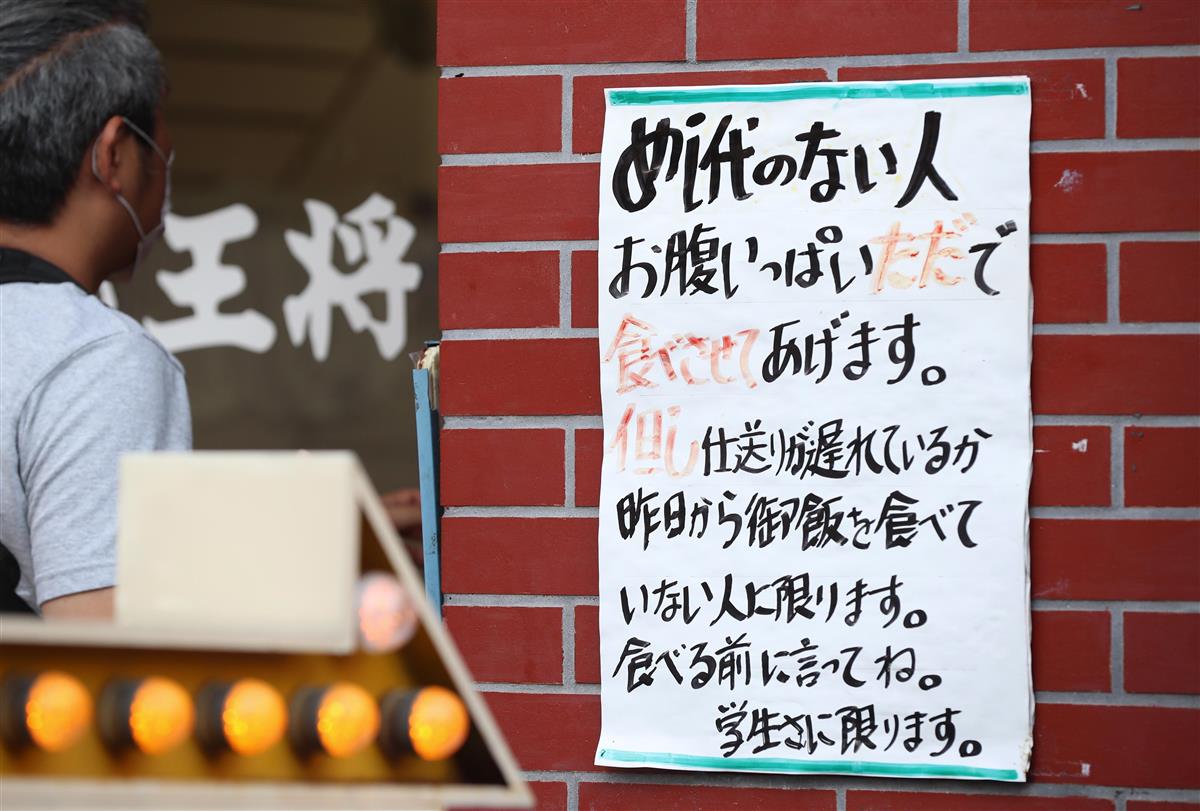 王将
めし代のない人
お腹いっぱいただで
食べさせてあげます。
但し仕送りが遅れているか
昨日から御飯を食べて
いない人に限ります。
食べる前に言ってね。
学生さんに限ります。